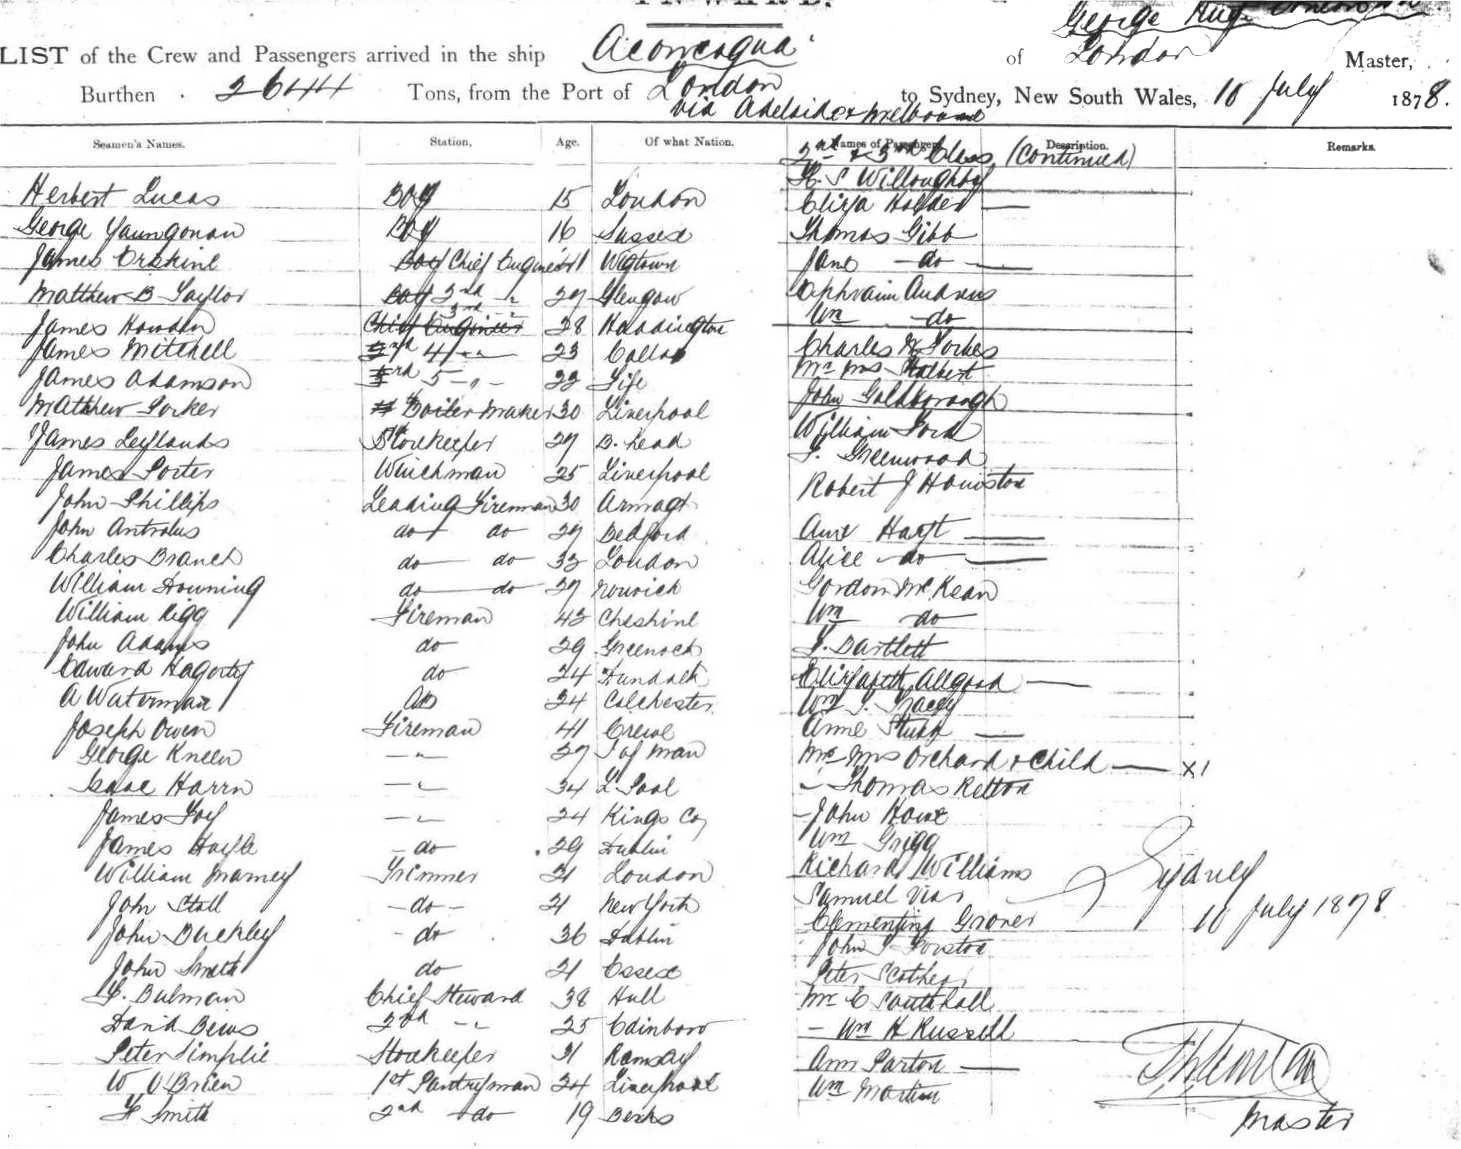 INWARD.
George
LIST of the Crew and Passengers arrived in the ship Aconcagua of London Master,
Burthen 2644 Tons, from the Port of London to Sydney, New South Wales, 10 July 1878.
via Adelaide & Melbourne
Seamen's Names. Station, Age. Of what Nation. Names of Passengers Description. Remarks.
2nd & 3rd Class (Continued)
Herbert Lucas Boy 15 London H. S Willoughby
George Boy 16 Sussex Eliza
James Erskine Boy Chief Engineer Wigtown Thomas Gibb
Matthew B Taylor Boy 2nd " 27 Glasgow Jane do
James Howden Chief Engineer 3rd " 28 Haddington Ephraim Andrews
James Mitchell 2nd 4 " 23 Wm do
James Adamson 3rd 5 " 22 Fife Charles H Forbes
Matthew Boiler Maker 30 Liverpool Mr Mrs
James Leylands Storekeeper 27 B. head John Goldborough
James Porter Winchman 25 Liverpool William Ford
John Phillips Leading Fireman 30 Armagh F. Greenwood
John Antrobus do do 27 Bedford Robert J
Charles Branch do do 32 London Hayt
William Downing do do 27 Norwich Alice do
William Rigg Fireman 42 Cheshire Gordon McKean
John Adams do 29 Greenock Wm do
Edward Hagorty do 24 Dundalk F. Bartlett
A Waterman AB 24 Colchester Elizabeth Allgood
Joseph Owen Fireman 41 Crewe Wm
George Kneen " 27 I of Man Anne
Isaac " 34 L'Pool Mr Mrs Orchard & Child X1
James Foy " 24 Kings Co Thomas
James Hoyle do 29 Dublin John
William Trimmer 21 London Wm Grigg
John Stall do 21 New York Richard Williams
John Buckley do 36 Dublin Samuel
John Smith do 21 Essex Grover
Bulman Chief Steward 38 Hull John
David Bews 2nd " 25 Edinboro Peter
Peter Storekeeper 31 Ramsay Mr C Southall
W O'Brien 1st Pantryman 24 Liverpool Wm H Russell
Smith 2nd do 19 Berks Ann Parton
Wm Martin
Sydney
10 July 1878
Master